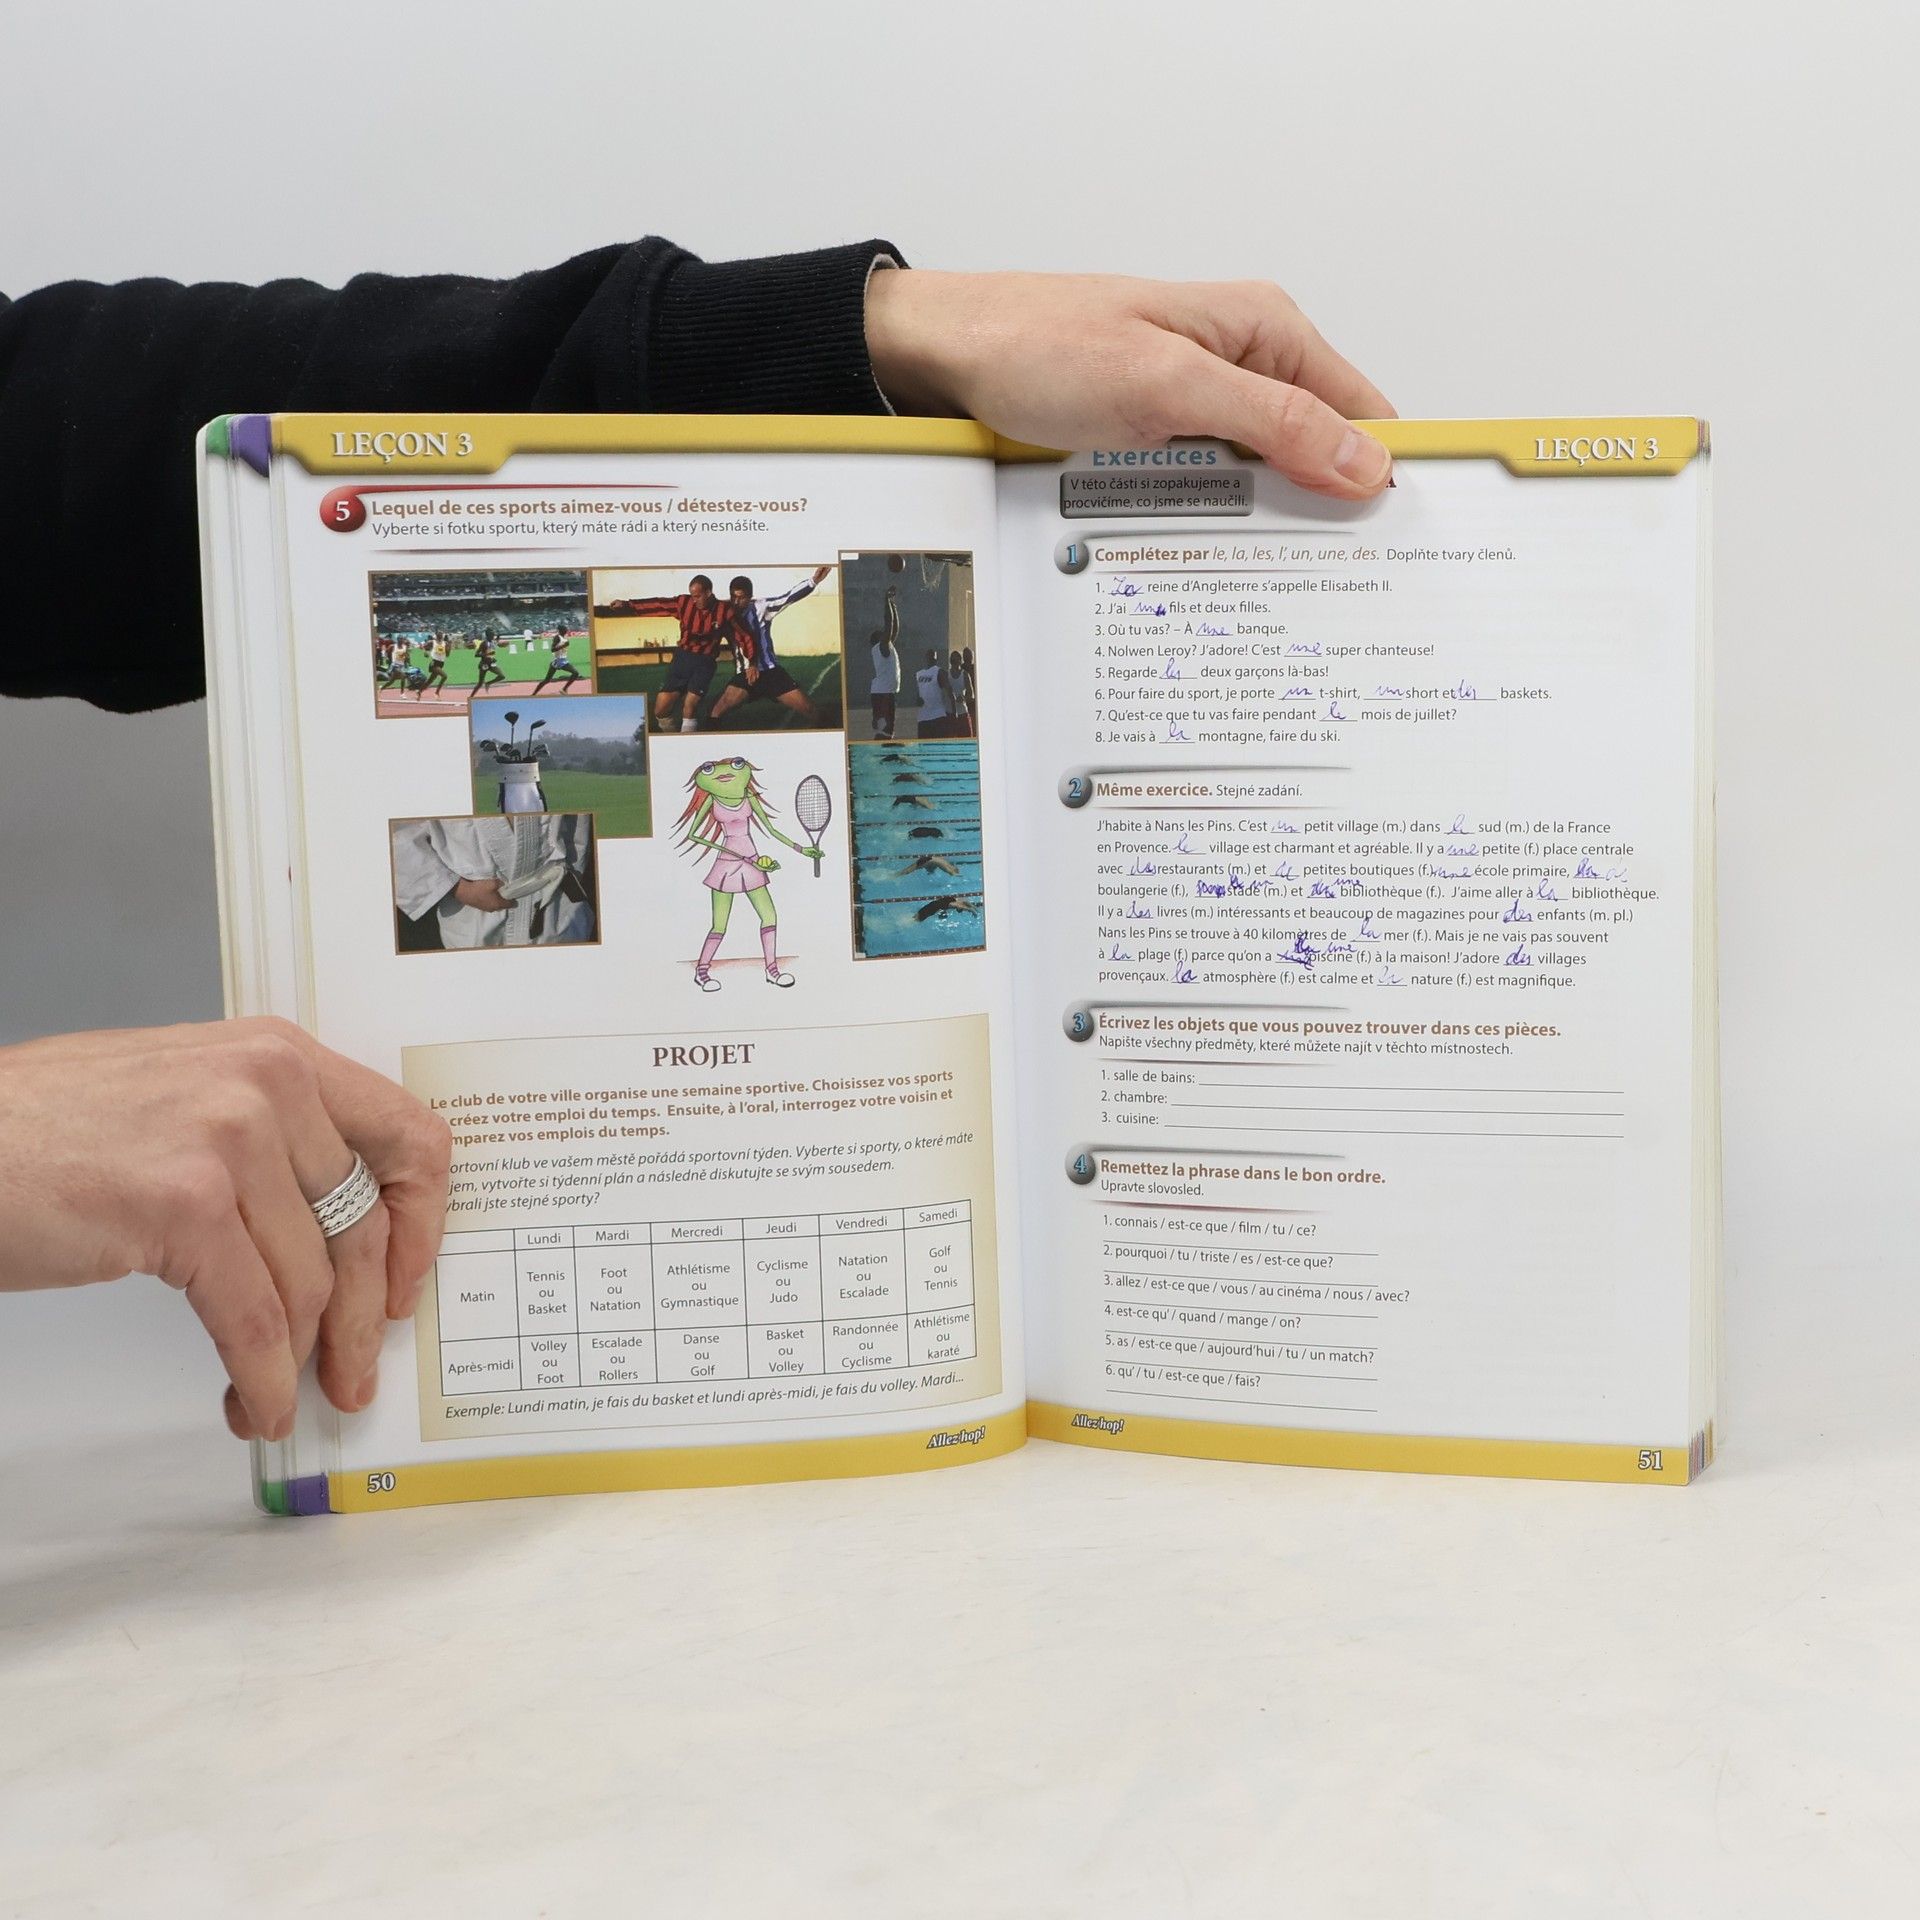 LEÇON 3
5 Lequel de ces sports aimez-vous / détestez-vous?
Vyberte si fotku sportu, který máte rádi a který nesnášíte.
PROJET
Le club de votre ville organise une semaine sportive. Choisissez vos sports
créez votre emploi du temps. Ensuite, à l'oral, interrogez votre voisin et
mparez vos emplois du temps.
ortovní klub ve vašem městě pořádá sportovní týden. Vyberte si sporty, o které máte
jem, vytvořte si týdenní plán a následně diskutujte se svým sousedem.
ybrali jste stejné sporty?
Lundi Mardi Mercredi Jeudi Vendredi Samedi
Matin
Tennis ou Basket
Foot ou Natation
Athlétisme ou Gymnastique
Cyclisme ou Judo
Natation ou Escalade
Golf ou Tennis
Après-midi
Volley ou Foot
Escalade ou Rollers
Danse ou Golf
Basket ou Volley
Randonnée ou Cyclisme
Athlétisme ou karaté
Exemple: Lundi matin, je fais du basket et lundi après-midi, je fais du volley. Mardi...
Allez hop!
50
LEÇON 3
Exercices
V této části si zopakujeme a
procvičíme, co jsme se naučili.
1 Complétez par le, la, les, l', un, une, des. Doplňte tvary členů.
1. La reine d'Angleterre s'appelle Elisabeth II.
2. J'ai un fils et deux filles.
3. Où tu vas? – À une banque.
4. Nolwen Leroy? J'adore! C'est une super chanteuse!
5. Regarde les deux garçons là-bas!
6. Pour faire du sport, je porte un t-shirt, un short et des baskets.
7. Qu'est-ce que tu vas faire pendant le mois de juillet?
8. Je vais à la montagne, faire du ski.
2 Même exercice. Stejné zadání.
J'habite à Nans les Pins. C'est un petit village (m.) dans le sud (m.) de la France
en Provence. le village est charmant et agréable. Il y a une petite (f.) place centrale
avec des restaurants (m.) et de petites boutiques (f.) une école primaire,
boulangerie (f.), un stade (m.) et une bibliothèque (f.). J'aime aller à la bibliothèque.
Il y a des livres (m.) intéressants et beaucoup de magazines pour des enfants (m. pl.)
Nans les Pins se trouve à 40 kilomètres de la mer (f.). Mais je ne vais pas souvent
à la plage (f.) parce qu'on a une piscine (f.) à la maison! J'adore des villages
provençaux. la atmosphère (f.) est calme et la nature (f.) est magnifique.
3 Écrivez les objets que vous pouvez trouver dans ces pièces.
Napište všechny předměty, které můžete najít v těchto místnostech.
1. salle de bains:
2. chambre:
3. cuisine:
4 Remettez la phrase dans le bon ordre.
Upravte slovosled.
1. connais / est-ce que / film / tu / ce?
2. pourquoi / tu / triste / es / est-ce que?
3. allez / est-ce que / vous / au cinéma / nous / avec?
4. est-ce qu' / quand / mange / on?
5. as / est-ce que / aujourd'hui / tu / un match?
6. qu' / tu / est-ce que / fais?
Allez hop!
51